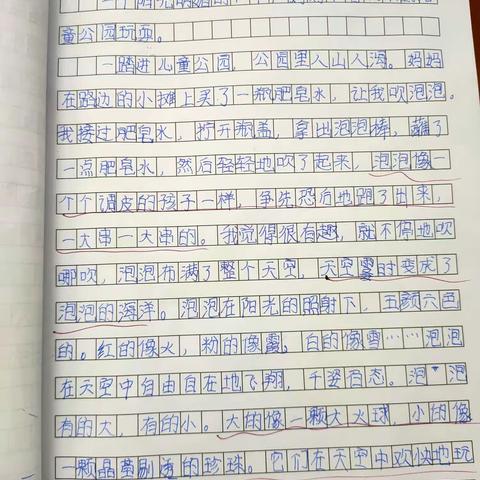 一个阳光明媚的
童公园玩耍。
一踏进儿童公园，公园里人山人海。妈妈
在路边的小摊上买了一瓶肥皂水，让我吹泡泡。
我接过肥皂水，拧开瓶盖，拿出泡泡棒，蘸了
一点肥皂水，然后轻轻地吹了起来，泡泡像一
个个调皮的孩子一样，争先恐后地跑了出来，
一大串一大串的。我觉得很有趣，就不停地吹
哪吹，泡泡布满了整个天空，天空霎时变成了
泡泡的海洋。泡泡在阳光的照射下，五颜六色
的。红的像火，粉的像霞，白的像雪……泡泡
在天空中自由自在地飞翔，千姿百态。泡泡
有的大，有的小。大的像一颗大火球，小的像
一颗晶莹剔透的珍珠。它们在天空中欢快地玩